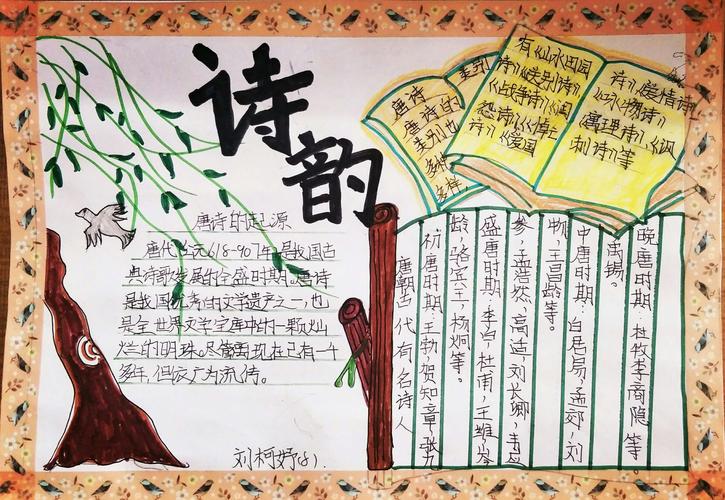 诗韵
唐诗的起源
唐代公元618-907年是我国古
典诗歌发展的全盛时期。唐诗
是我国优秀的文学遗产之一,也
是全世界文学宝库中的一颗灿
烂的明珠。尽管离现在已有一千
多年,但依广为流传。
刘柯妤(8).
唐诗
唐诗的
类别也
多样
多样
类别
有《山水田园
诗》《送别诗》
《战争诗》《闺
怨诗》《悼亡
诗》《爱国
诗》《爱情诗》
《咏物诗》
《寓理诗》《讽
刺诗》等
唐朝古代有名诗人
初唐时期:王勃,贺知章,张九
龄,骆宾王,杨炯等。
盛唐时期:李白,杜甫,王维,岑
参,孟浩然,高适,刘长卿,韦应
物,王昌龄等。
中唐时期:白居易,孟郊,刘
禹锡。
晚唐时期:杜牧李商隐等。